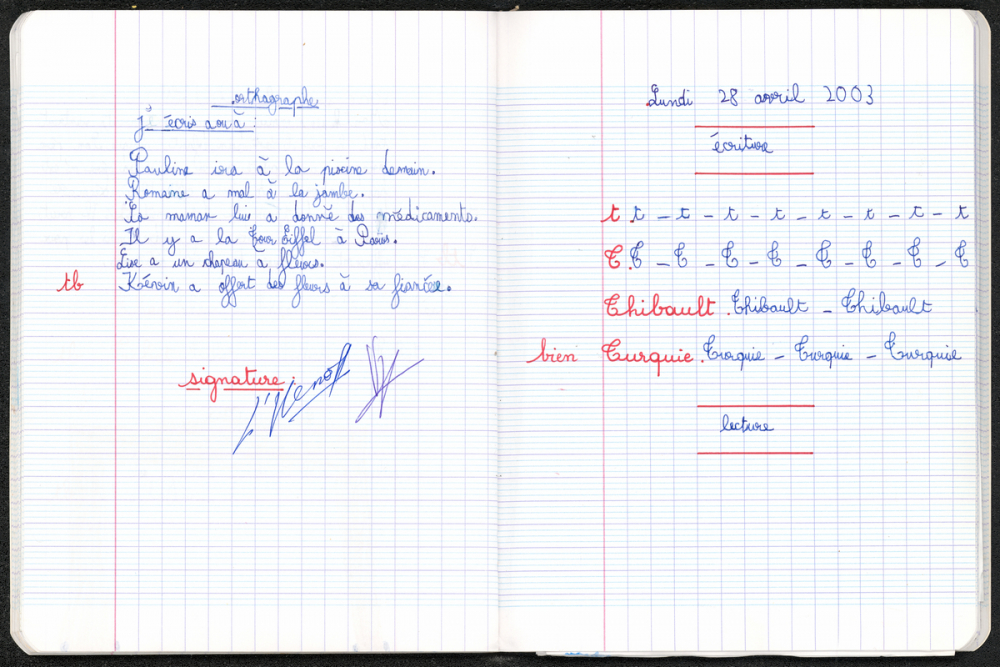 orthographe
j'écris a ou à :
Pauline ira à la piscine demain.
Romaine a mal à la jambe.
La maman lui a donné des médicaments.
Il y a la tour Eiffel à Paris.
Lise a un chapeau à fleurs.
tb Kévin a offert des fleurs à sa fiancée.
signature :
Lundi 28 avril 2003
écriture
t. t - t - t - t - t - t - t - t
T. T - T - T - T - T - T - T - T
Thibault. Thibault - Thibault
bien Turquie. Turquie - Turquie - Turquie
lecture